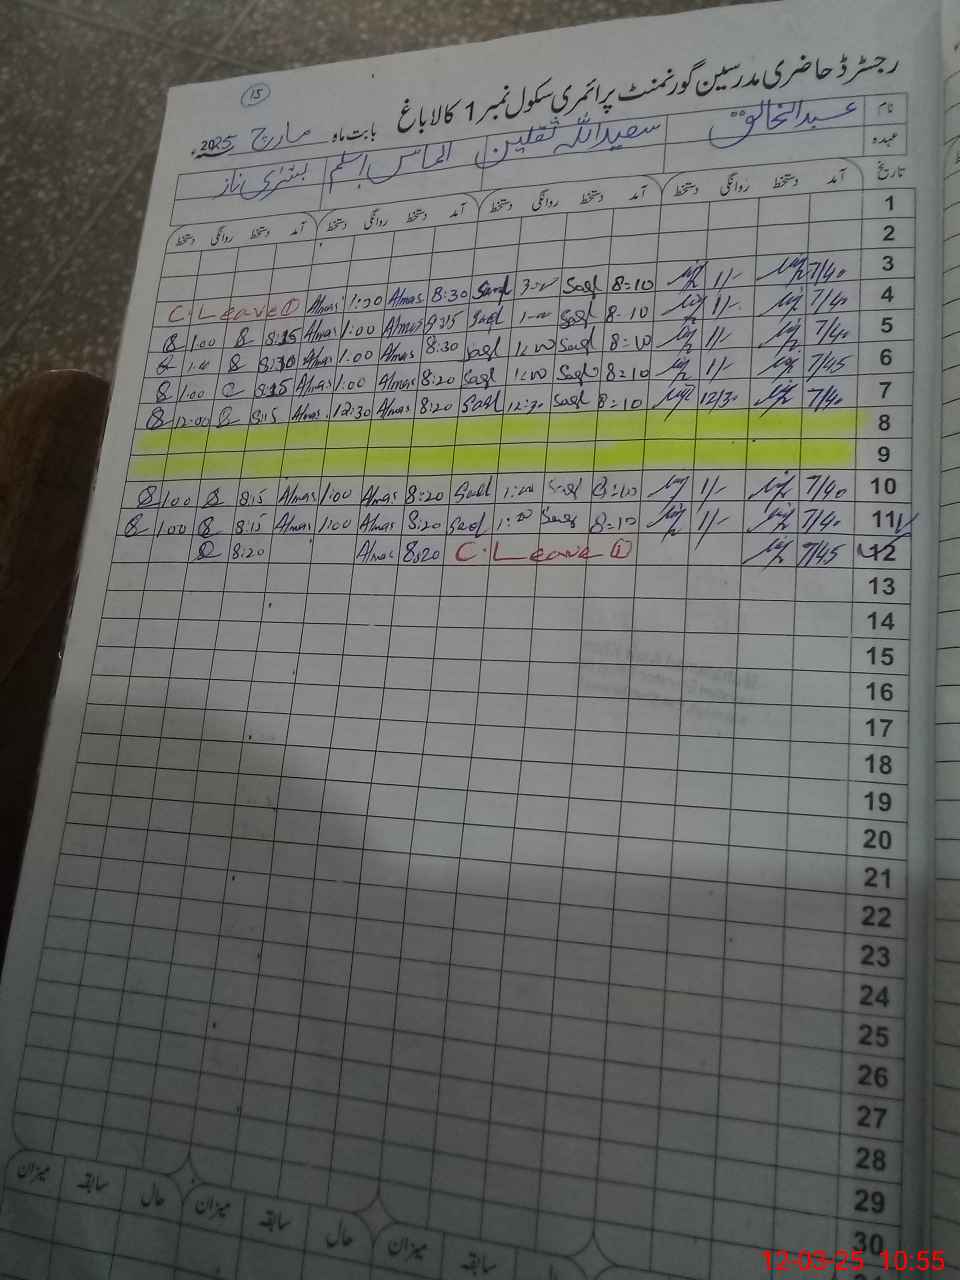 15
رجسٹرڈ حاضری مدرسین گورنمنٹ پرائمری سکول نمبر 1 کالا باغ بابت ماہ مارچ 2025ء
نام عبدالخالق سعیداللہ ثقلین الماس اسلم بشریٰ ناز
عہدہ
تاریخ آمد دستخط روانگی دستخط آمد دستخط روانگی دستخط آمد دستخط روانگی دستخط آمد دستخط روانگی دستخط
1
2
C. Leave ① Almas 1:30 Almas 8:30 Saql Saql 8=10 1/- 7/40 3
1:00 8:15 Almas 1:00 Almas 8:15 Saql 1:00 Saql 8-10 1/- 7/40 4
1:00 8:30 Almas 1:00 Almas 8:30 Saql 1:00 Saql 8=10 1/- 7/40 5
1:00 8:15 Almas 1:00 Almas 8:20 Saql 1:00 Saql 8=10 1/- 7/45 6
12:00 8:15 Almas 12:30 Almas 8:20 Saql 12:30 Saql 8=10 12/30 7/40 7
8
9
1:00 8:15 Almas 1:00 Almas 8:20 Saql 1:00 Saql 8=10 1/- 7/40 10
1:00 8:15 Almas 1:00 Almas 8:20 Saql 1:00 Saql 8=10 1/- 7/40 11
8:20 Almas 8:20 C. Leave ① 7/45 12
13
14
15
16
17
18
19
20
21
22
23
24
25
26
27
28
29
30
حال سابقہ میزان حال سابقہ میزان
سابقہ میزان
12-03-25 10:55